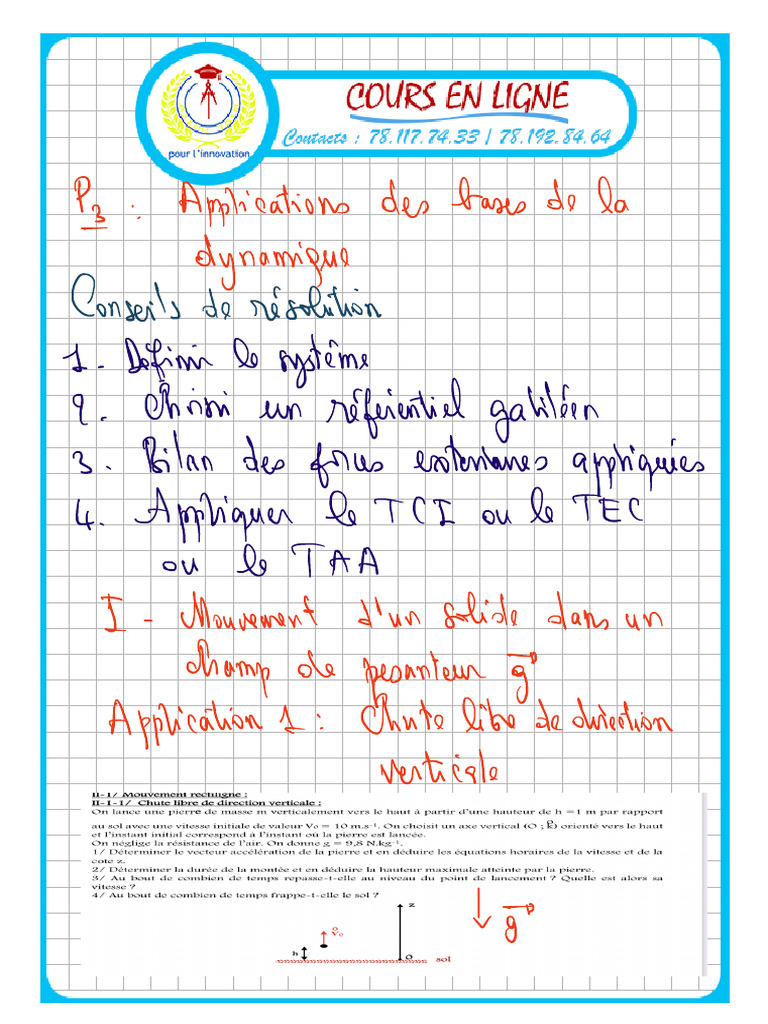 COURS EN LIGNE
Contacts : 78.117.74.33 / 78.192.84.64
pour l'innovation
P3 : Applications des bases de la
dynamique
Conseils de résolution
1 - Définir le système
2. Choisir un référentiel galiléen
3. Bilan des forces extérieures appliquées
4. Appliquer le TCI ou le TEC
ou le TAA
I - Mouvement d'un solide dans un
champ de pesanteur g
Application 1 : Chute libre de direction
verticale
II-1/ Mouvement rectiligne :
II-1-1/ Chute libre de direction verticale :
On lance une pierre de masse m verticalement vers le haut à partir d'une hauteur de h =1 m par rapport
au sol avec une vitesse initiale de valeur V₀ = 10 m.s⁻¹. On choisit un axe vertical (O ; k) orienté vers le haut
et l'instant initial correspond à l'instant où la pierre est lancée.
On néglige la résistance de l'air. On donne g = 9,8 N.kg⁻¹.
1/ Déterminer le vecteur accélération de la pierre et en déduire les équations horaires de la vitesse et de la
cote z.
2/ Déterminer la durée de la montée et en déduire la hauteur maximale atteinte par la pierre.
3/ Au bout de combien de temps repasse-t-elle au niveau du point de lancement ? Quelle est alors sa
vitesse ?
4/ Au bout de combien de temps frappe-t-elle le sol ?
z
V₀
g
h
O
sol